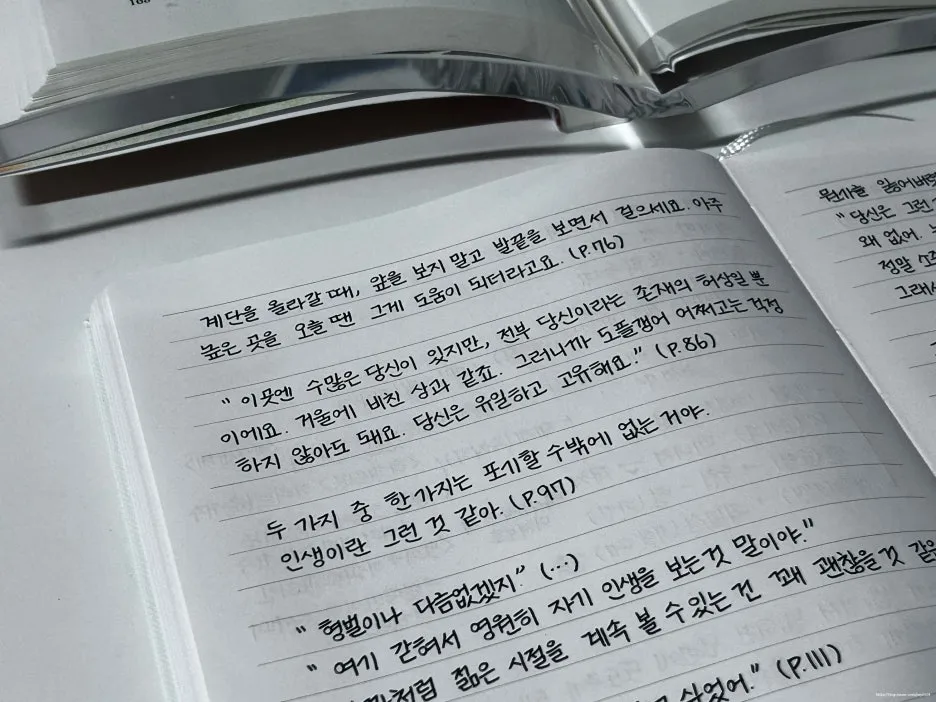 계단을 올라갈 때, 앞을 보지 말고 발끝을 보면서 걸으세요. 아주
높은 곳을 오를 땐 그게 도움이 되더라고요. (P.76)
" 이곳엔 수많은 당신이 있지만, 전부 당신이라는 존재의 허상일 뿐
이에요. 거울에 비친 상과 같죠. 그러니까 도플갱어 어쩌고는 걱정
하지 않아도 돼요. 당신은 유일하고 고유해요." (P.86)
두 가지 중 한 가지는 포기할 수밖에 없는 거야.
인생이란 그런 것 같아. (P.97)
" 형벌이나 다름없겠지." (…)
" 여기 갇혀서 영원히 자기 인생을 보는 것 말이야."
처럼 젊은 시절을 계속 볼 수 있는 건 꽤 괜찮을 것 같은
싶었어." (P.111)
잃어버렸
" 당신은 그런
왜 없어.
정말
그래서